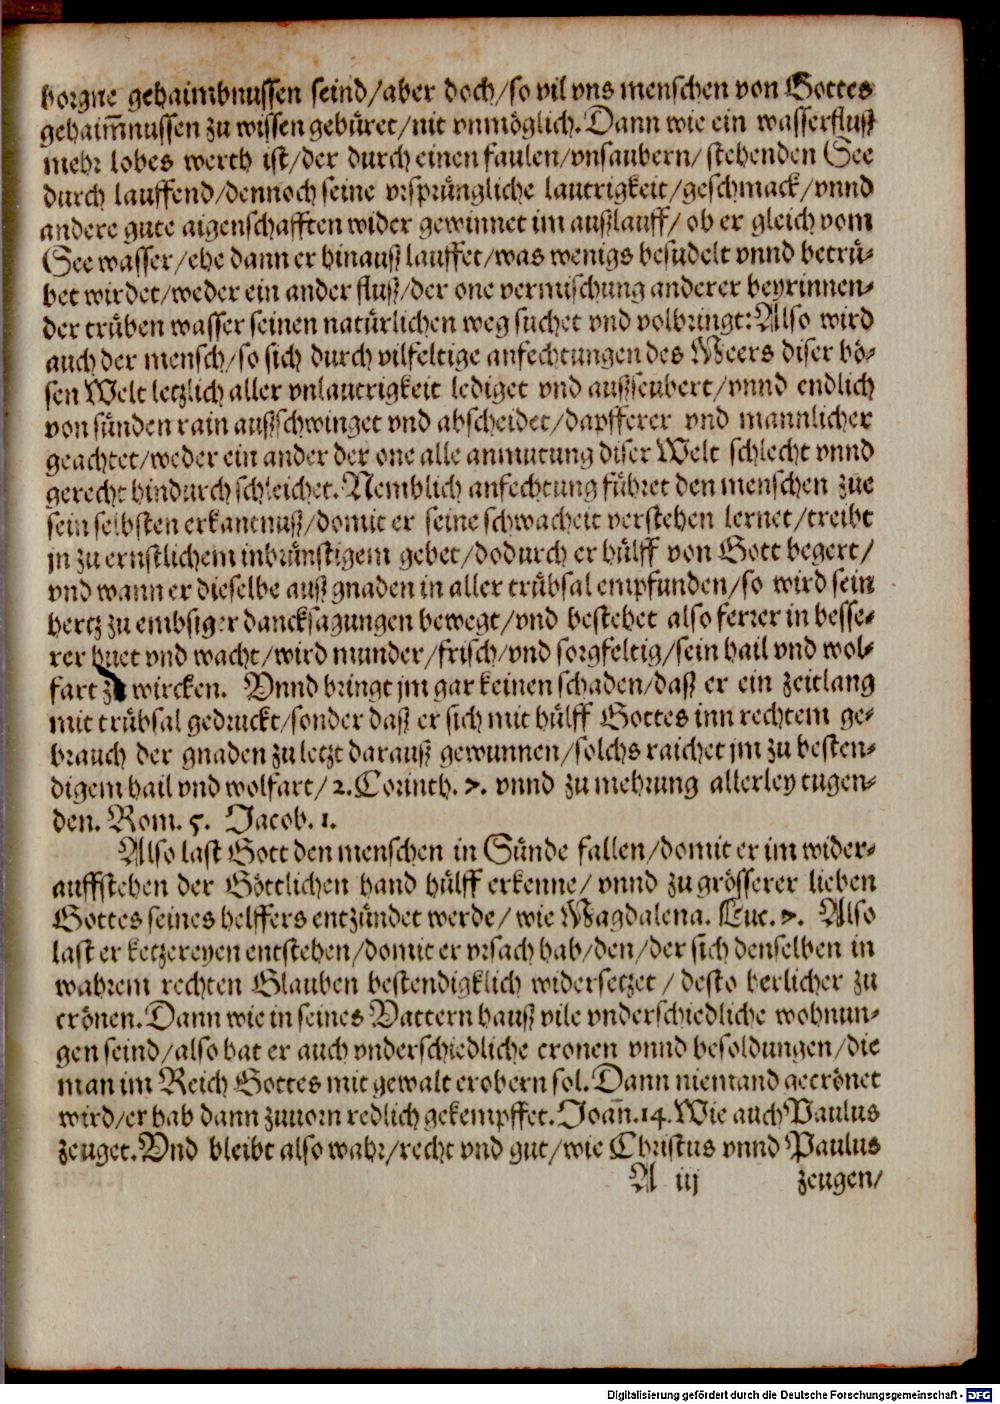 borgne gehaimbnussen seind/aber doch/so vil vns menschen von Gottes
gehaim̄nussen zu wissen gebüret/nit vnmöglich. Dann wie ein wasserfluß
mehr lobes werth ist/der durch einen faulen/vnsaubern/stehenden See
durch lauffend/dennoch seine vrsprüngliche lautrigkeit/geschmack/vnnd
andere gute aigenschafften wider gewinnet im außlauff/ ob er gleich vom
See wasser/ehe dann er hinauß lauffet/was wenigs besudelt vnnd betrü-
bet wirdet/weder ein ander fluß/der one vermischung anderer beyrinnen-
der trüben wasser seinen natürlichen weg suchet vnd volbringt: Also wird
auch der mensch/so sich durch vilfeltige anfechtungen des Meers diser bö-
sen Welt letzlich aller vnlautrigkeit lediget vnd außseubert/vnnd endlich
von sünden rain außschwinget vnd abscheidet/dapfferer vnd mannlicher
geachtet/weder ein ander der one alle anmutung diser Welt schlecht vnnd
gerecht hindurch schleichet. Nemblich anfechtung führet den menschen zue
sein selbsten erkantnuß/domit er seine schwacheit verstehen lernet/treibt
jn zu ernstlichem inbrünstigem gebet/dodurch er hülff von Gott begert/
vnd wann er dieselbe auß gnaden in aller trübsal empfunden/so wird sein
hertz zu embsiger dancksagungen bewegt/vnd bestehet also ferrer in besse-
rer huet vnd wacht/wird munder/frisch/vnd sorgfeltig/sein hail vnd wol-
fart zu wircken. Vnnd bringt jm gar keinen schaden/daß er ein zeitlang
mit trübsal gedruckt/sonder daß er sich mit hülff Gottes inn rechtem ge-
brauch der gnaden zu letzt darauß gewunnen/solchs raichet jm zu besten-
digem hail vnd wolfart/ 2. Corinth. 7. vnnd zu mehrung allerley tugen-
den. Rom. 5. Jacob. 1.
Also last Gott den menschen in Sünde fallen/domit er im wider-
auffstehen der Göttlichen hand hülff erkenne/ vnnd zu grösserer lieben
Gottes seines helffers entzündet werde/ wie Magdalena. Luc. 7. Also
last er ketzereyen entstehen/domit er vrsach hab/den/der sich denselben in
wahrem rechten Glauben bestendigklich widersetzet / desto herlicher zu
crönen. Dann wie in seines Vattern hauß vile vnderschiedliche wohnun-
gen seind/also hat er auch vnderschiedliche cronen vnnd besoldungen/die
man im Reich Gottes mit gewalt erobern sol. Dann niemand gecrönet
wird/er hab dann zuuorn redlich gekempffet. Joan̄. 14. Wie auch Paulus
zeuget. Vnd bleibt also wahr/recht vnd gut/wie Christus vnnd Paulus
A iij zeugen/
Digitalisierung gefördert durch die Deutsche Forschungsgemeinschaft - DFG